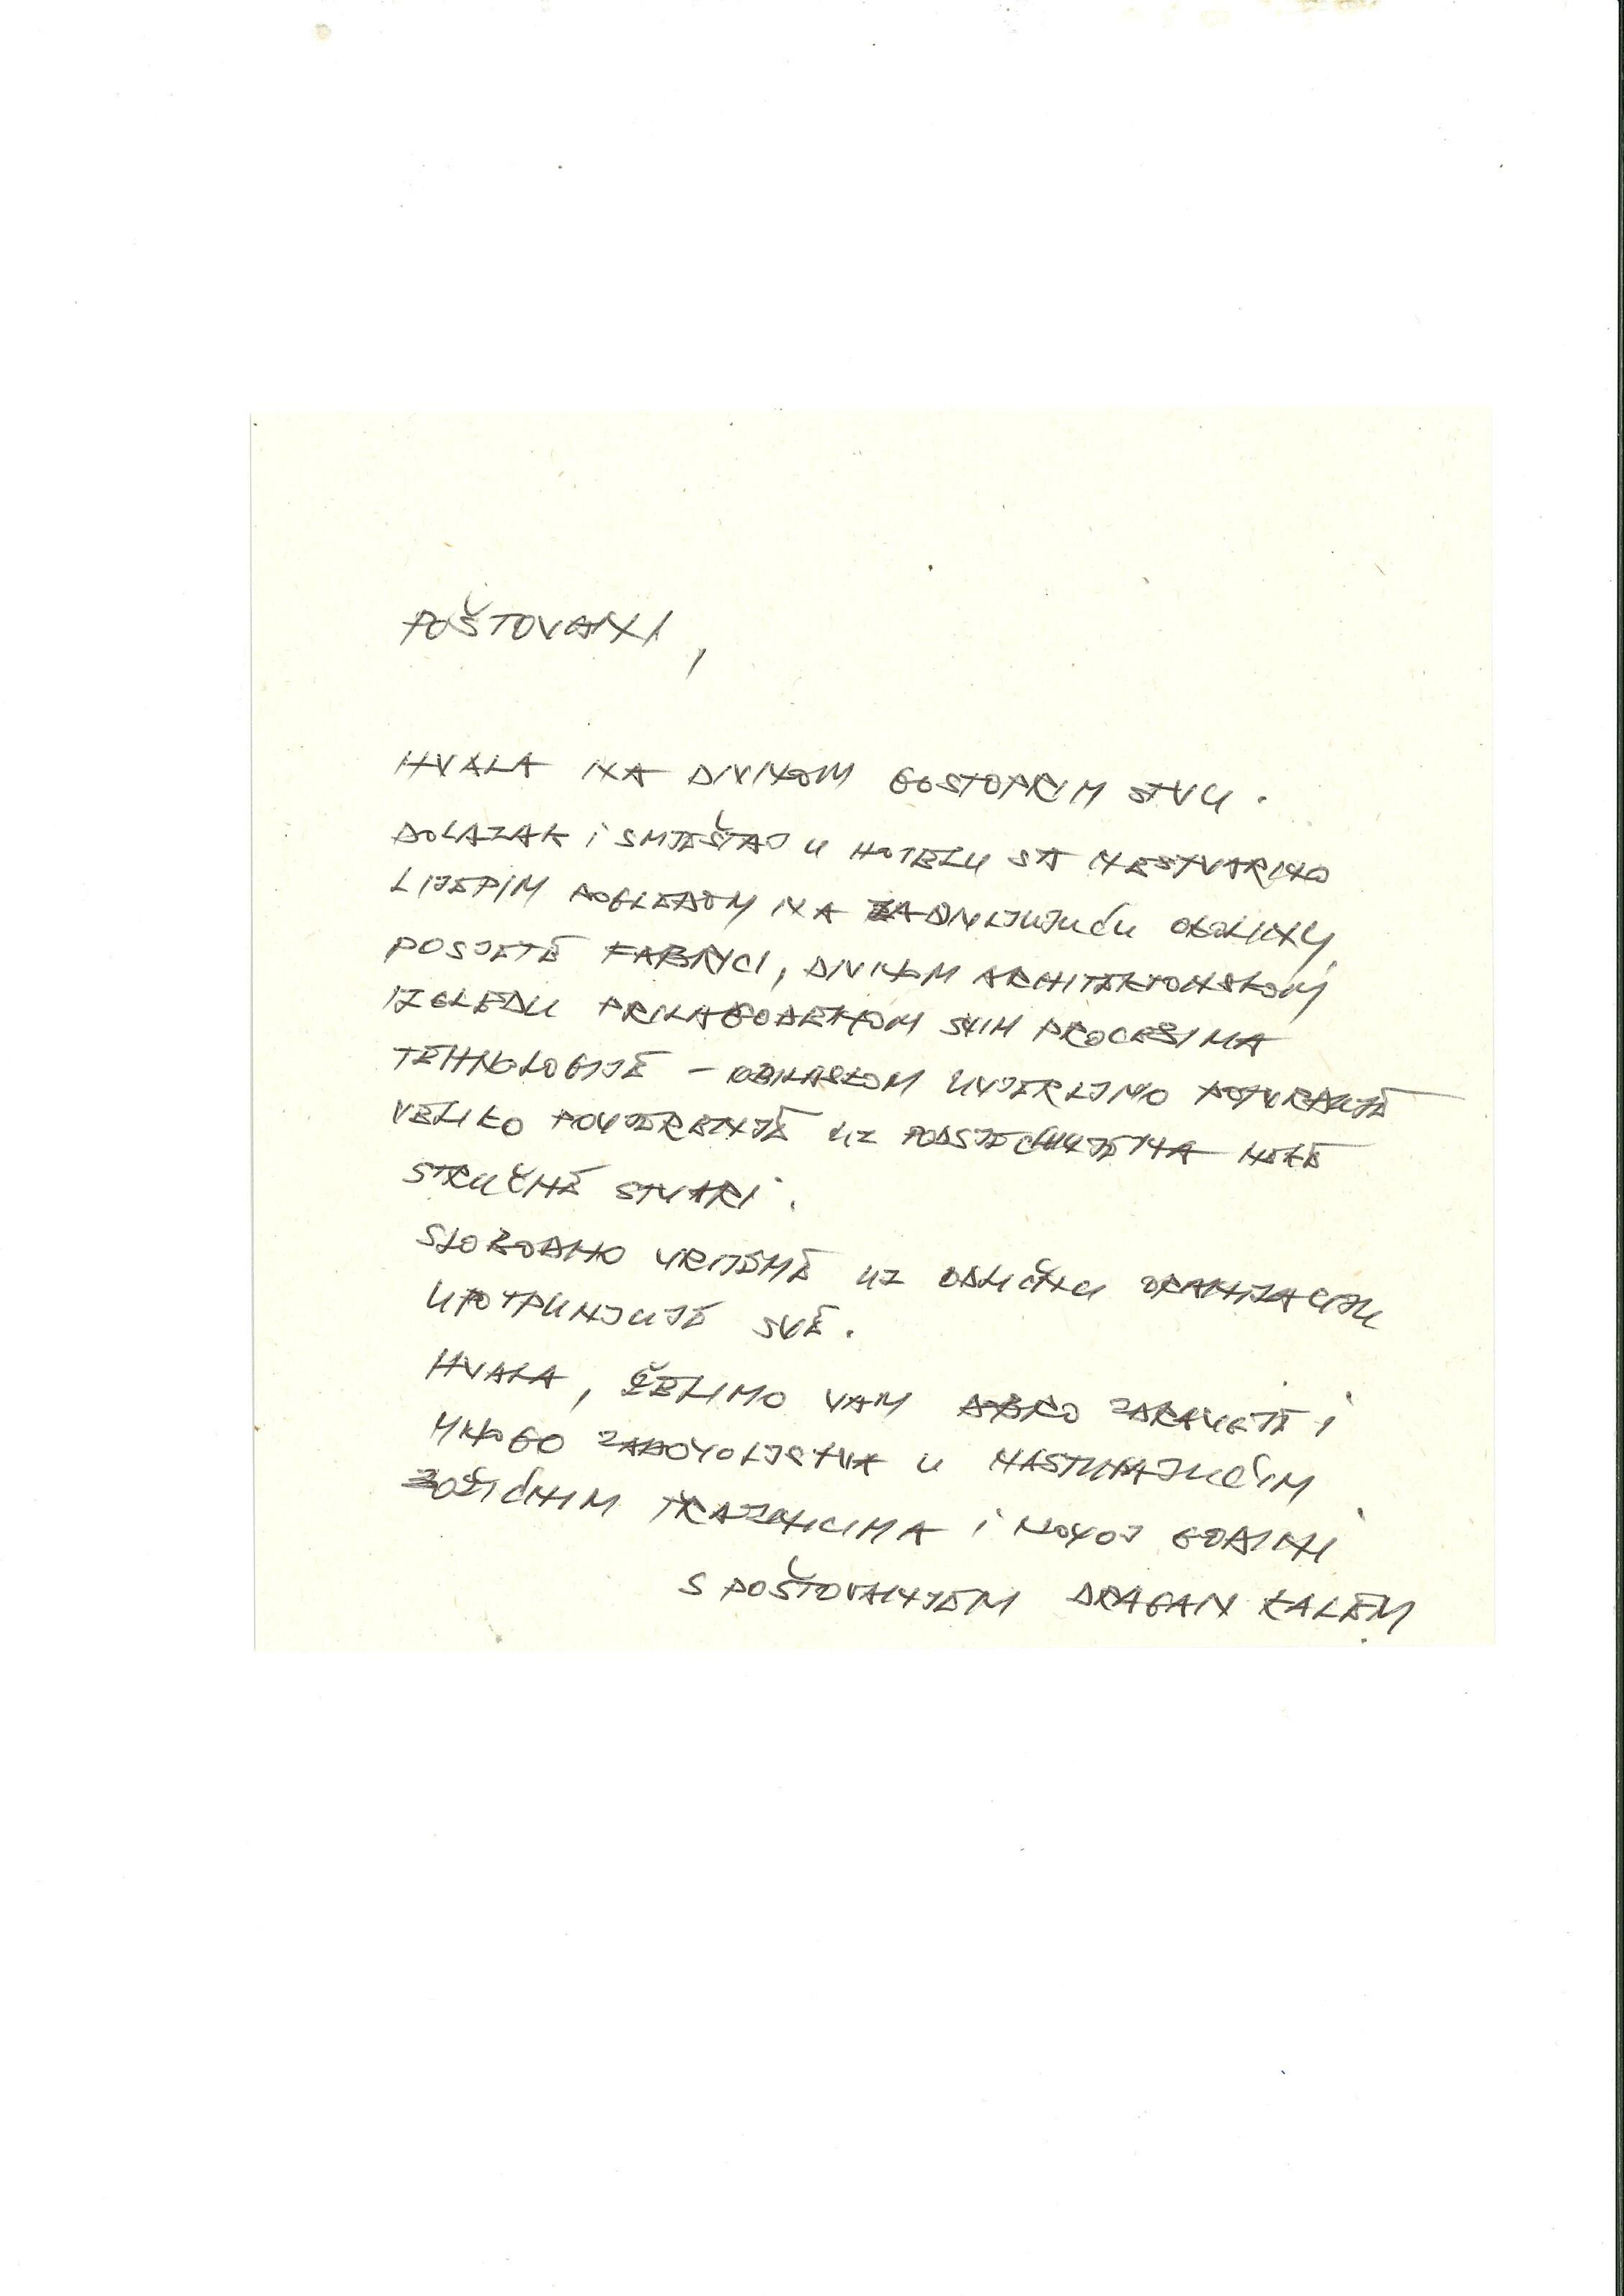 POŠTOVANI,
HVALA NA DIVNOM GOSTOPRIMSTVU.
DOLAZAK I SMJEŠTAJ U HOTELU SA NESTVARNO
LIJEPIM POGLEDOM NA ZADIVLJUJUĆU OKOLINU,
POSJETE FABRICI, DIVNOM ARHITEKTONSKOM
IZGLEDU PRILAGOĐENOM SVIM PROCESIMA
TEHNOLOGIJE - UVJERLJIVO POTVRĐUJE
VELIKO POVJERENJE UZ PODSJEĆANJE NA NEKE
STRUČNE STVARI.
SLOBODNO VRIJEME UZ ODLIČNU
UPOTPUNJUJE SVE.
HVALA, ŽELIMO VAM DOBRO ZDRAVLJE I
MNOGO ZADOVOLJSTVA U NASTUPAJUĆIM
BOŽIĆNIM PRAZNICIMA I NOVOJ GODINI
S POŠTOVANJEM DRAGAN KALEM